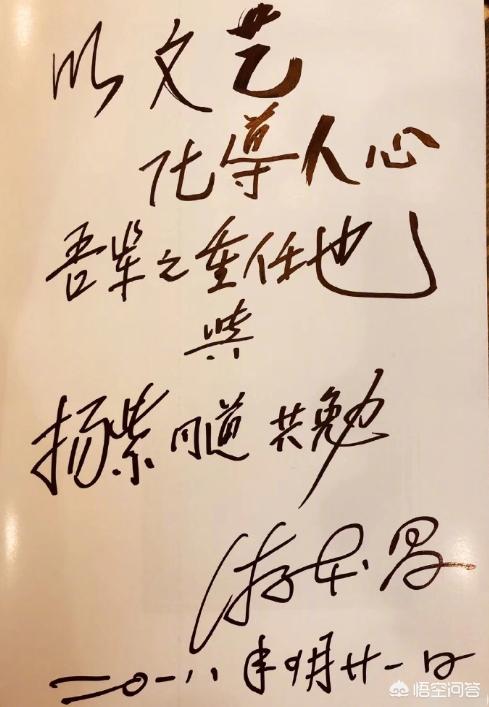 以文艺
化导人心
吾辈之重任也
與
杨紫同道共勉
游本昌
二〇一八年九月廿一日
悟空问答